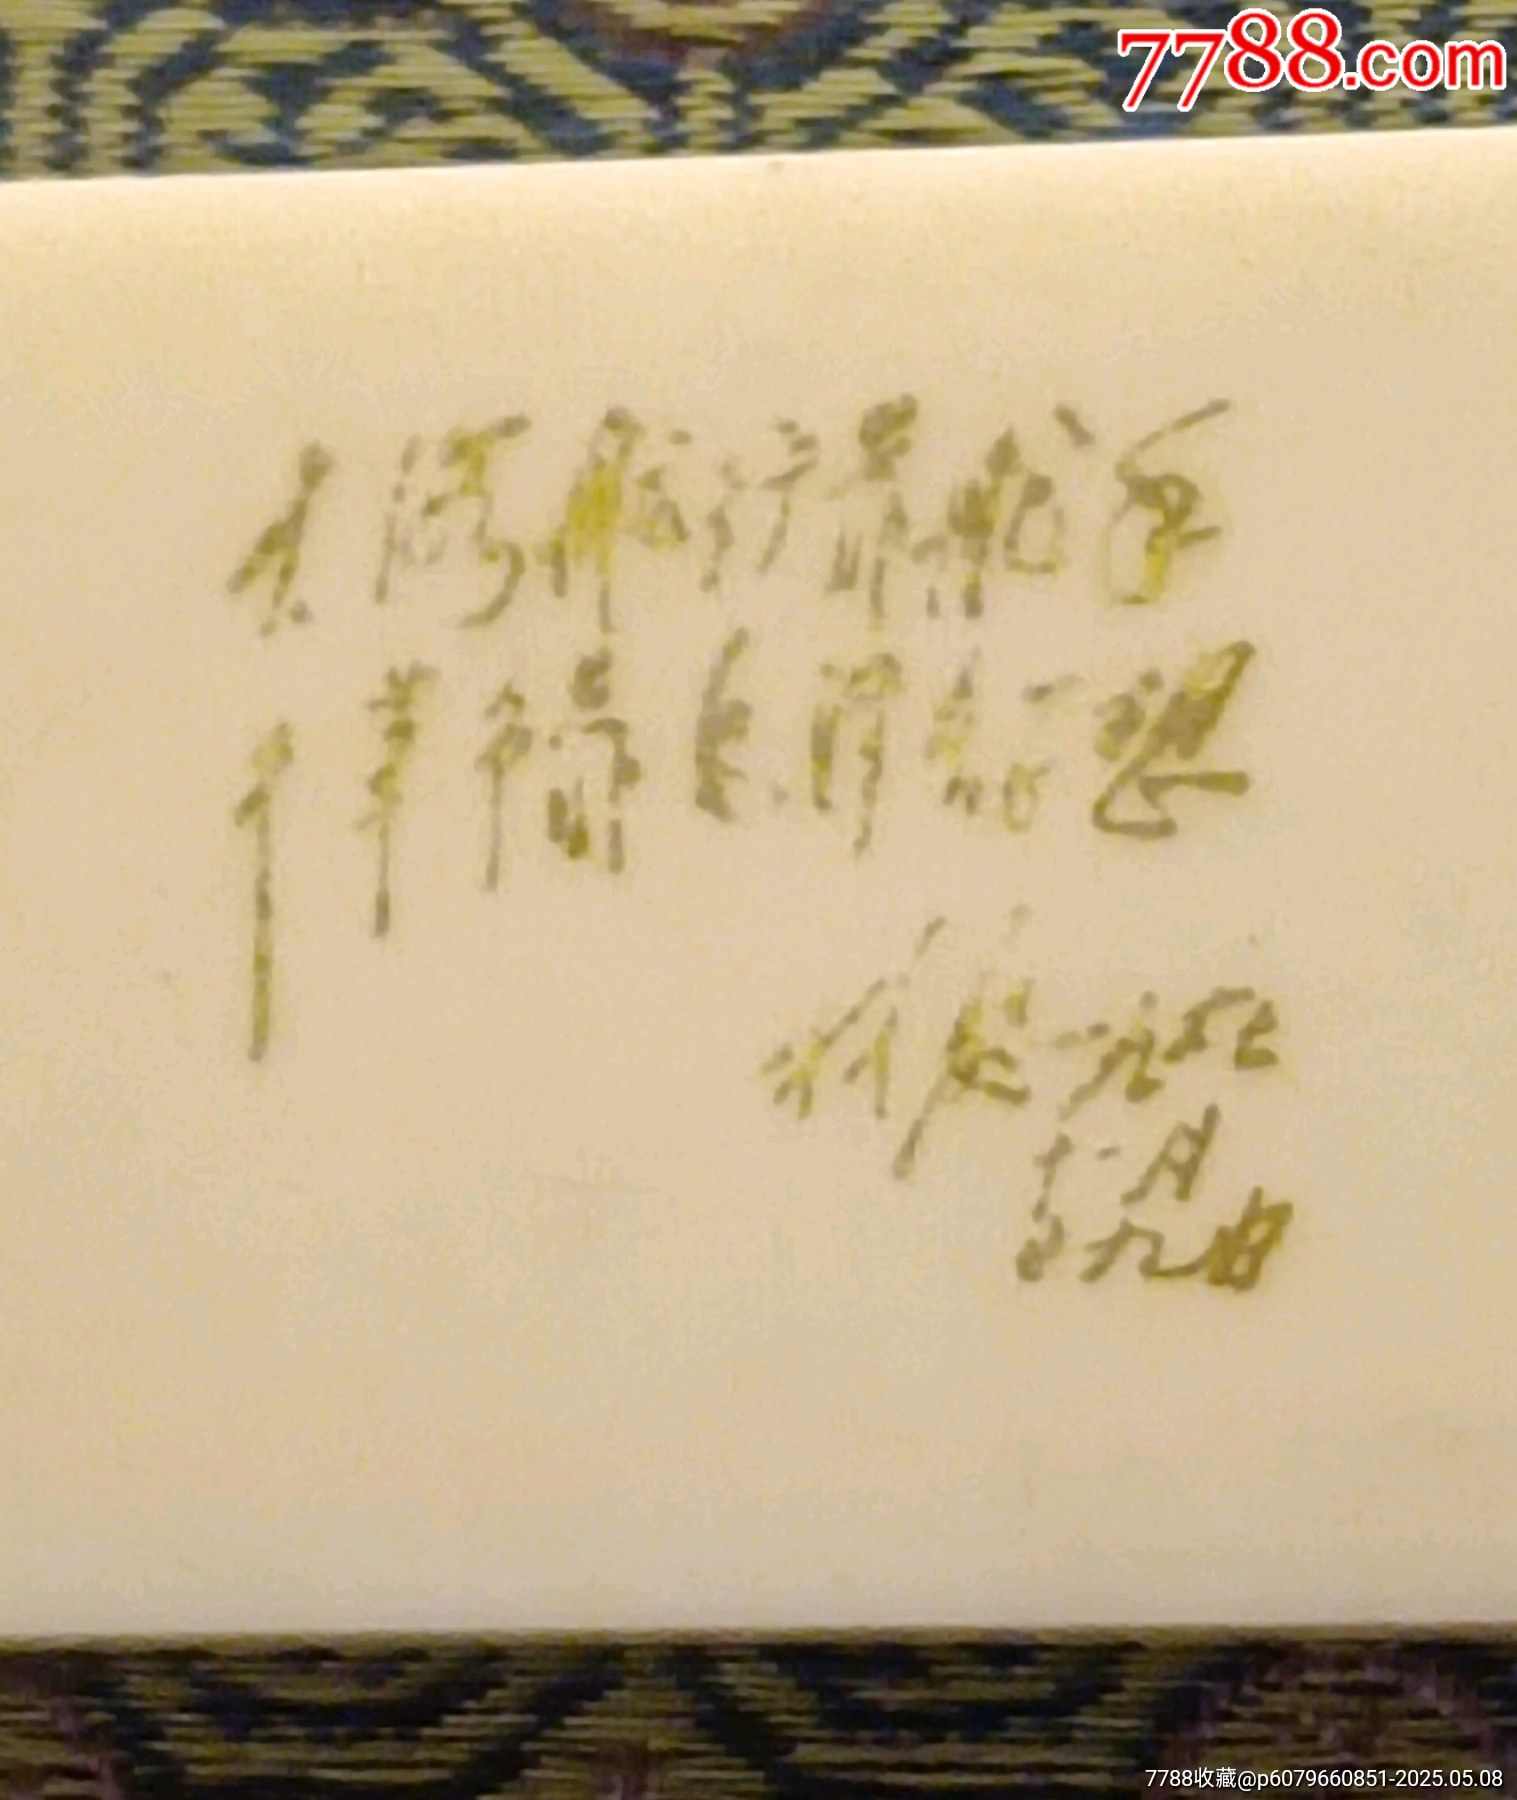 7788.com
大海航行靠舵手
干革命靠毛泽东思想
林彪 一九六七
十一月
廿九日
7788收藏@p6079660851-2025.05.08